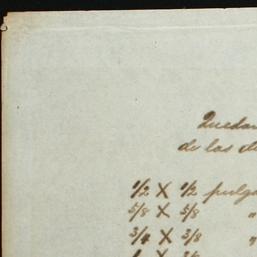 Quedan
de las
1/2 X 1/2 pulg
5/8 X 5/8 "
3/4 X 3/8 "